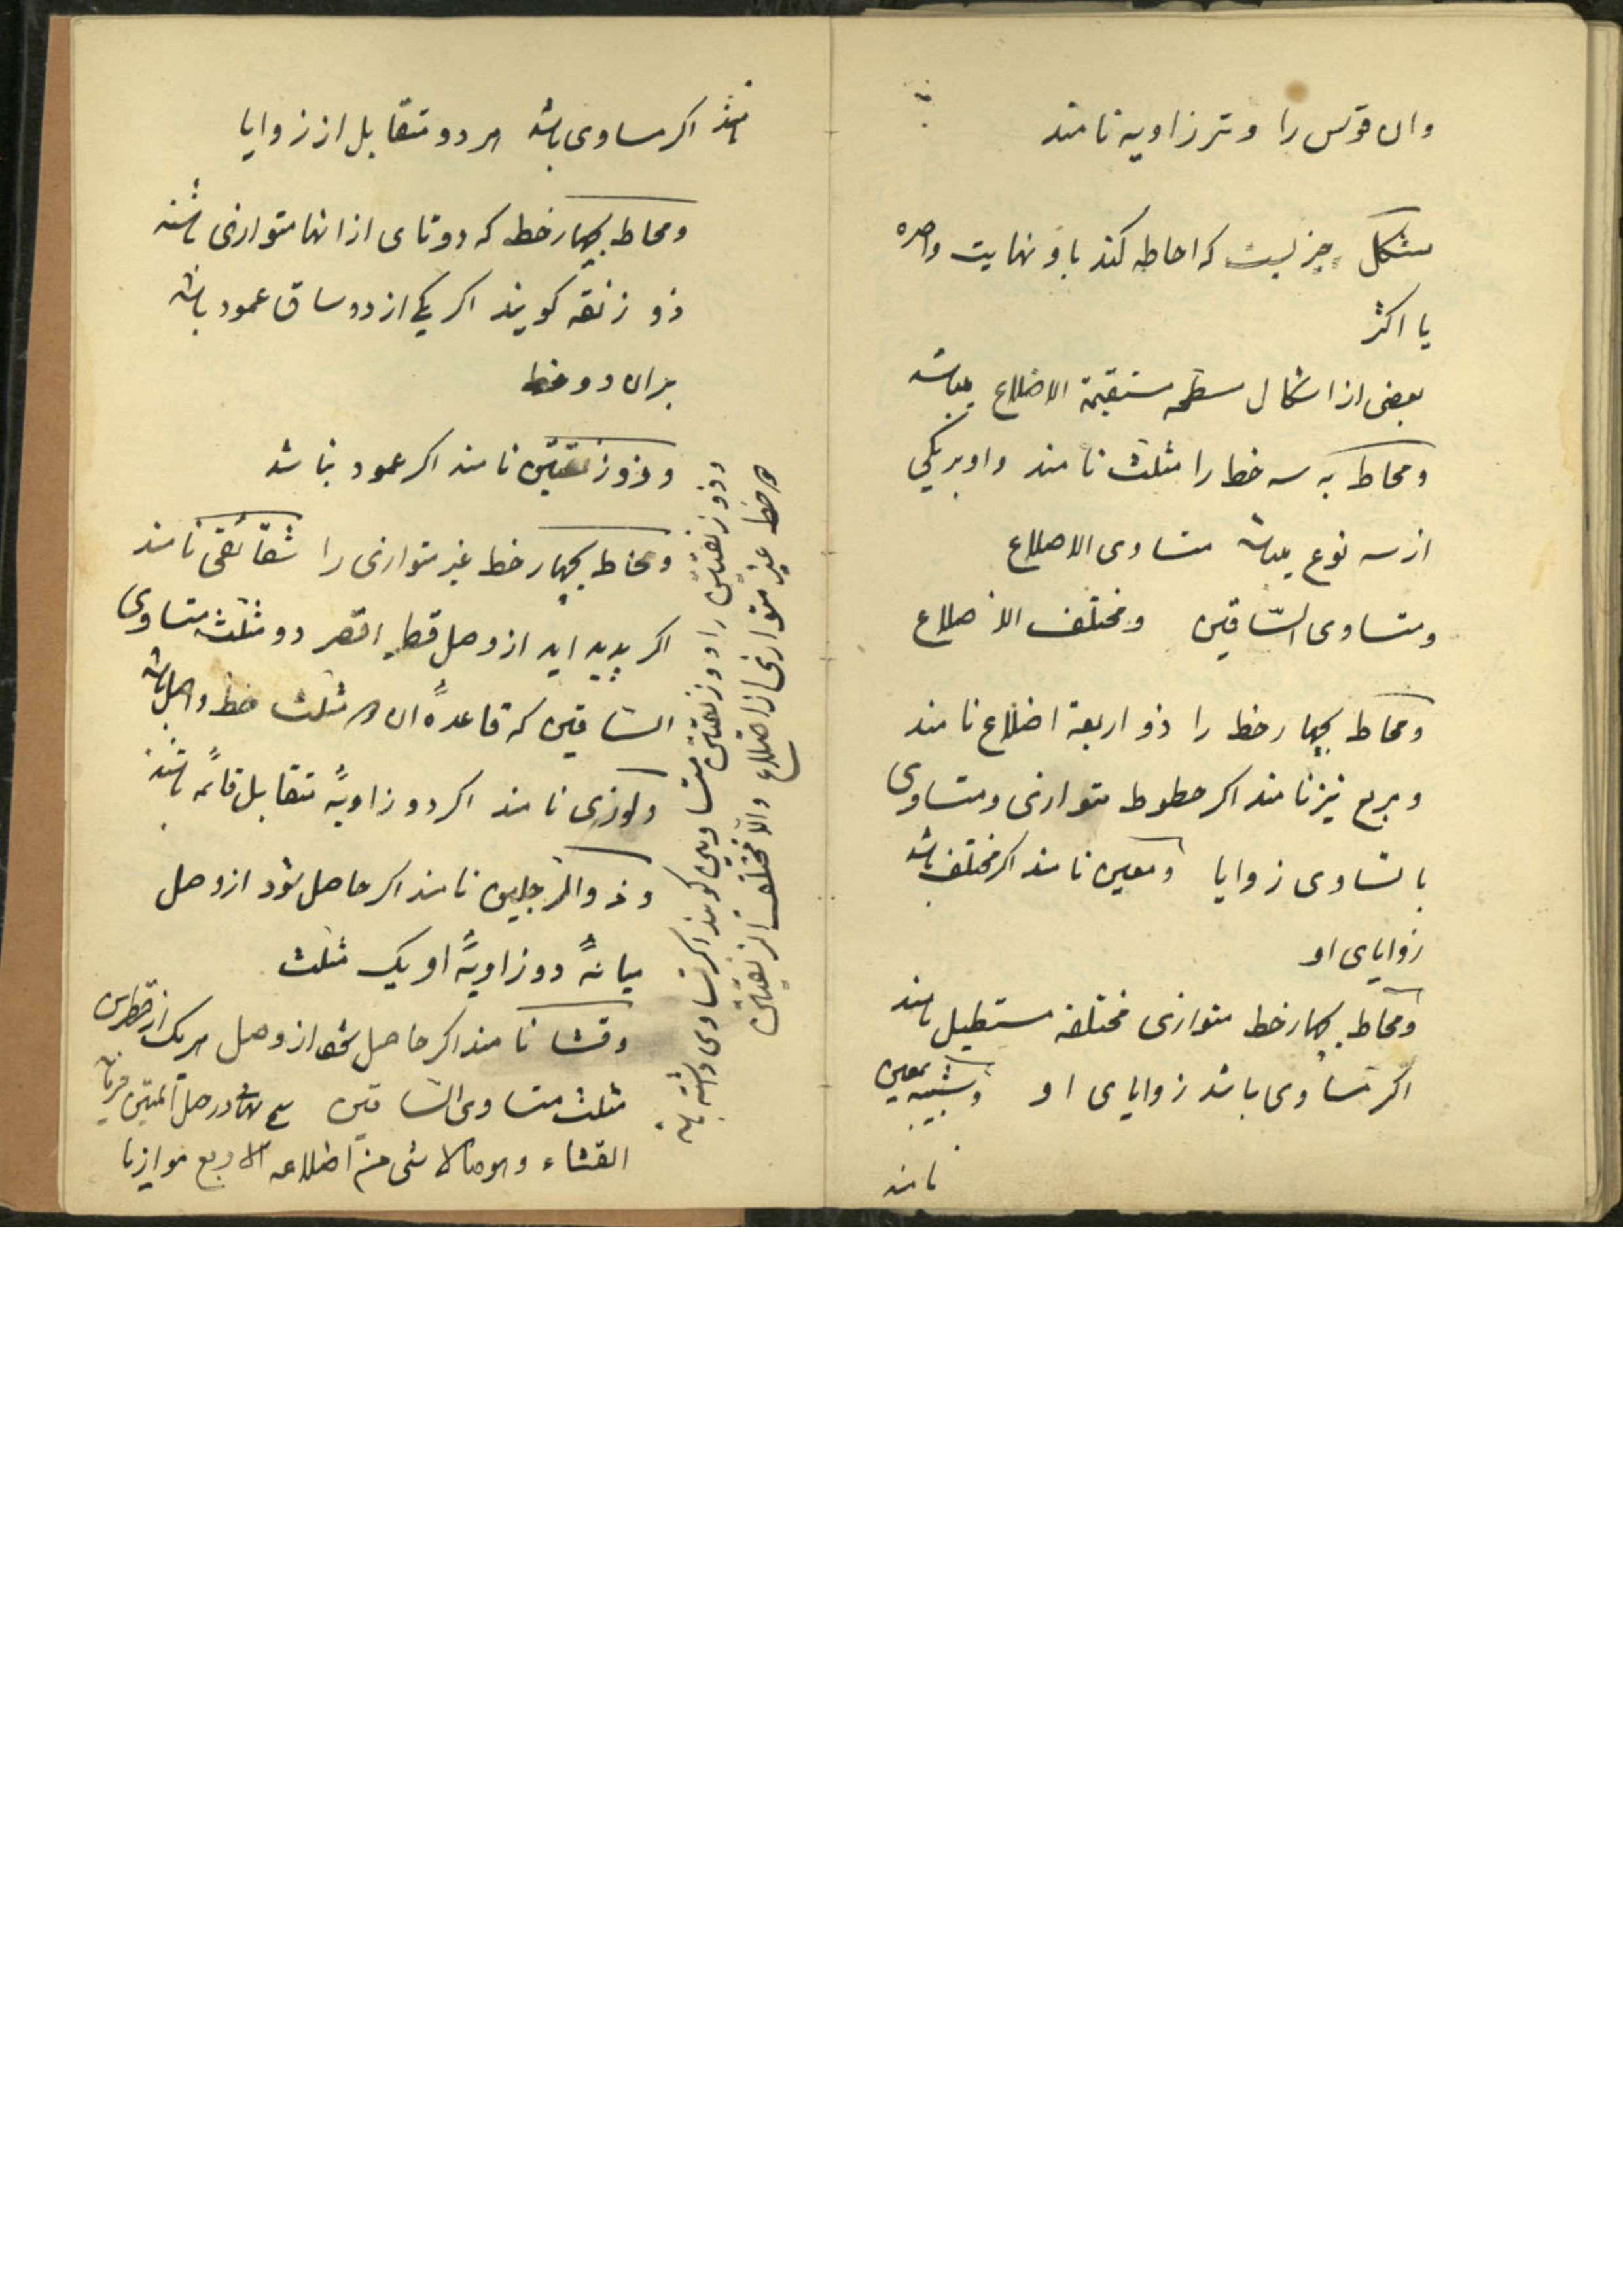 وان قوس را وتر زاویه نامند
شکل چیزیست که احاطه کند باو نهایت واحده
یا اکثر
بعضی از اشکال مسطحه مستقیمة الاضلاع میباشد
ومحاط به سه خط را مثلث نامند واو بریکی
از سه نوع میباشد متساوی الاضلاع
ومتساوی السّاقین ومختلف الاضلاع
ومحاط بچهار خط را ذو اربعة اضلاع نامند
ومربع نیز نامند اکر خطوط متوازی ومتساوی
با تساوی زوایا ومعین نامند اکر مختلف باشد
زوایای او
ومحاط بچهار خط متوازی مختلفه مستطیل نامند
اکر متساوی باشد زوایای او وشبیه بمعین
نامند
نامند اکر مساوی باشد هر دو متقابل از زوایا
ومحاط بچهار خط که دو تای از انها متوازی باشند
ذو زنقه کویند اکر یکی از دو ساق عمود باشد
بران دو خط
وذو زنقتین نامند اکر عمود نباشد
ومحاط بچهار خط غیر متوازی را شقائقی نامند
اکر پدید اید از وصل اقصر دو مثلث متساوی
الساقین که قاعدهٔ ان هر مثلث خط واصل باشد
ولوزی نامند اکر دو زاویهٔ متقابل قائمه باشند
وذو الرجلین نامند اکر حاصل شود از وصل
میانهٔ دو زاویهٔ او یک مثلث
وقثا نامند اکر حاصل شود از وصل هریک از قطرین
مثلث متساوی الساقین
القثاء وهو ما لا شئ من اضلاعه الاربع موازیا
وذو زنقتین را ذو زنقتین متساویین کویند اکر تساوی داشته باشد
هر خط غیر متوازی از اضلاع والّا مختلف الزنقتین